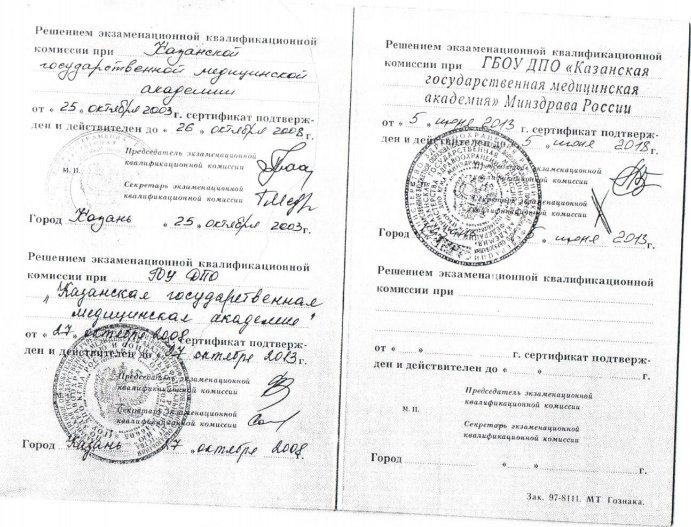 Решением экзаменационной квалификационной
комиссии при Казанской
государственной медицинской
академии
от « 25 » октября 2003 г. сертификат подтверж-
ден и действителен до « 26 » октября 2008 г.
Председатель экзаменационной
квалификационной комиссии
М. П.
Секретарь экзаменационной
квалификационной комиссии
Город Казань « 25 » октября 2003 г.
Решением экзаменационной квалификационной
комиссии при ГОУ ДПО
„Казанская государственная
медицинская академия"
от « 27 » октября 2008 г. сертификат подтверж-
ден и действителен до « 27 » октября 2013 г.
Председатель экзаменационной
квалификационной комиссии
Секретарь экзаменационной
квалификационной комиссии
Город Казань « 27 » октября 2008 г.
Решением экзаменационной квалификационной
комиссии при ГБОУ ДПО «Казанская
государственная медицинская
академия» Минздрава России
от « 5 » июня 2013 г. сертификат подтверж-
ден и действителен до « 5 » июня 2018 г.
Председатель экзаменационной
квалификационной комиссии
Секретарь экзаменационной
квалификационной комиссии
Город « 5 » июня 2013 г.
Решением экзаменационной квалификационной
комиссии при
от « » г. сертификат подтверж-
ден и действителен до « » г.
Председатель экзаменационной
квалификационной комиссии
М. П.
Секретарь экзаменационной
квалификационной комиссии
Город « » г.
Зак. 97-8111. МТ Гознака.